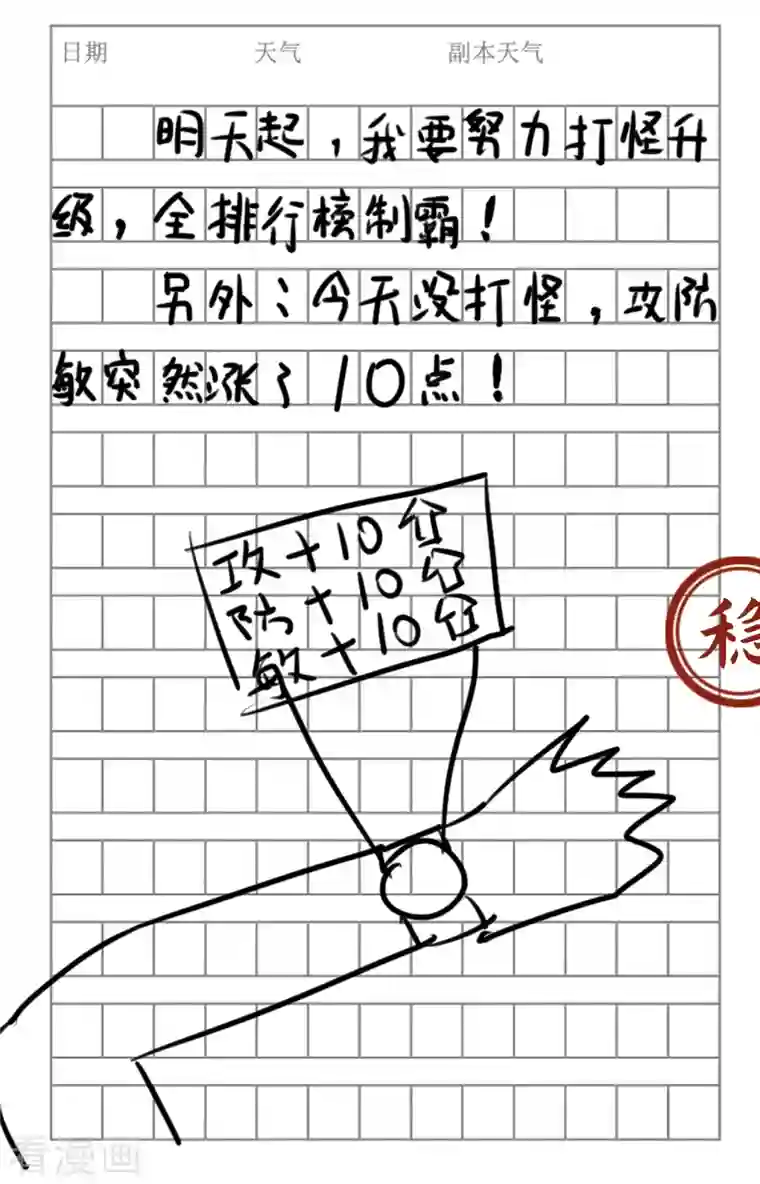 日期 天气 副本天气
明天起，我要努力打怪升
级，全排行榜制霸！
另外：今天没打怪，攻防
敏突然涨了10点！
攻+10分
防+10分
敏+10分
稳
看漫画